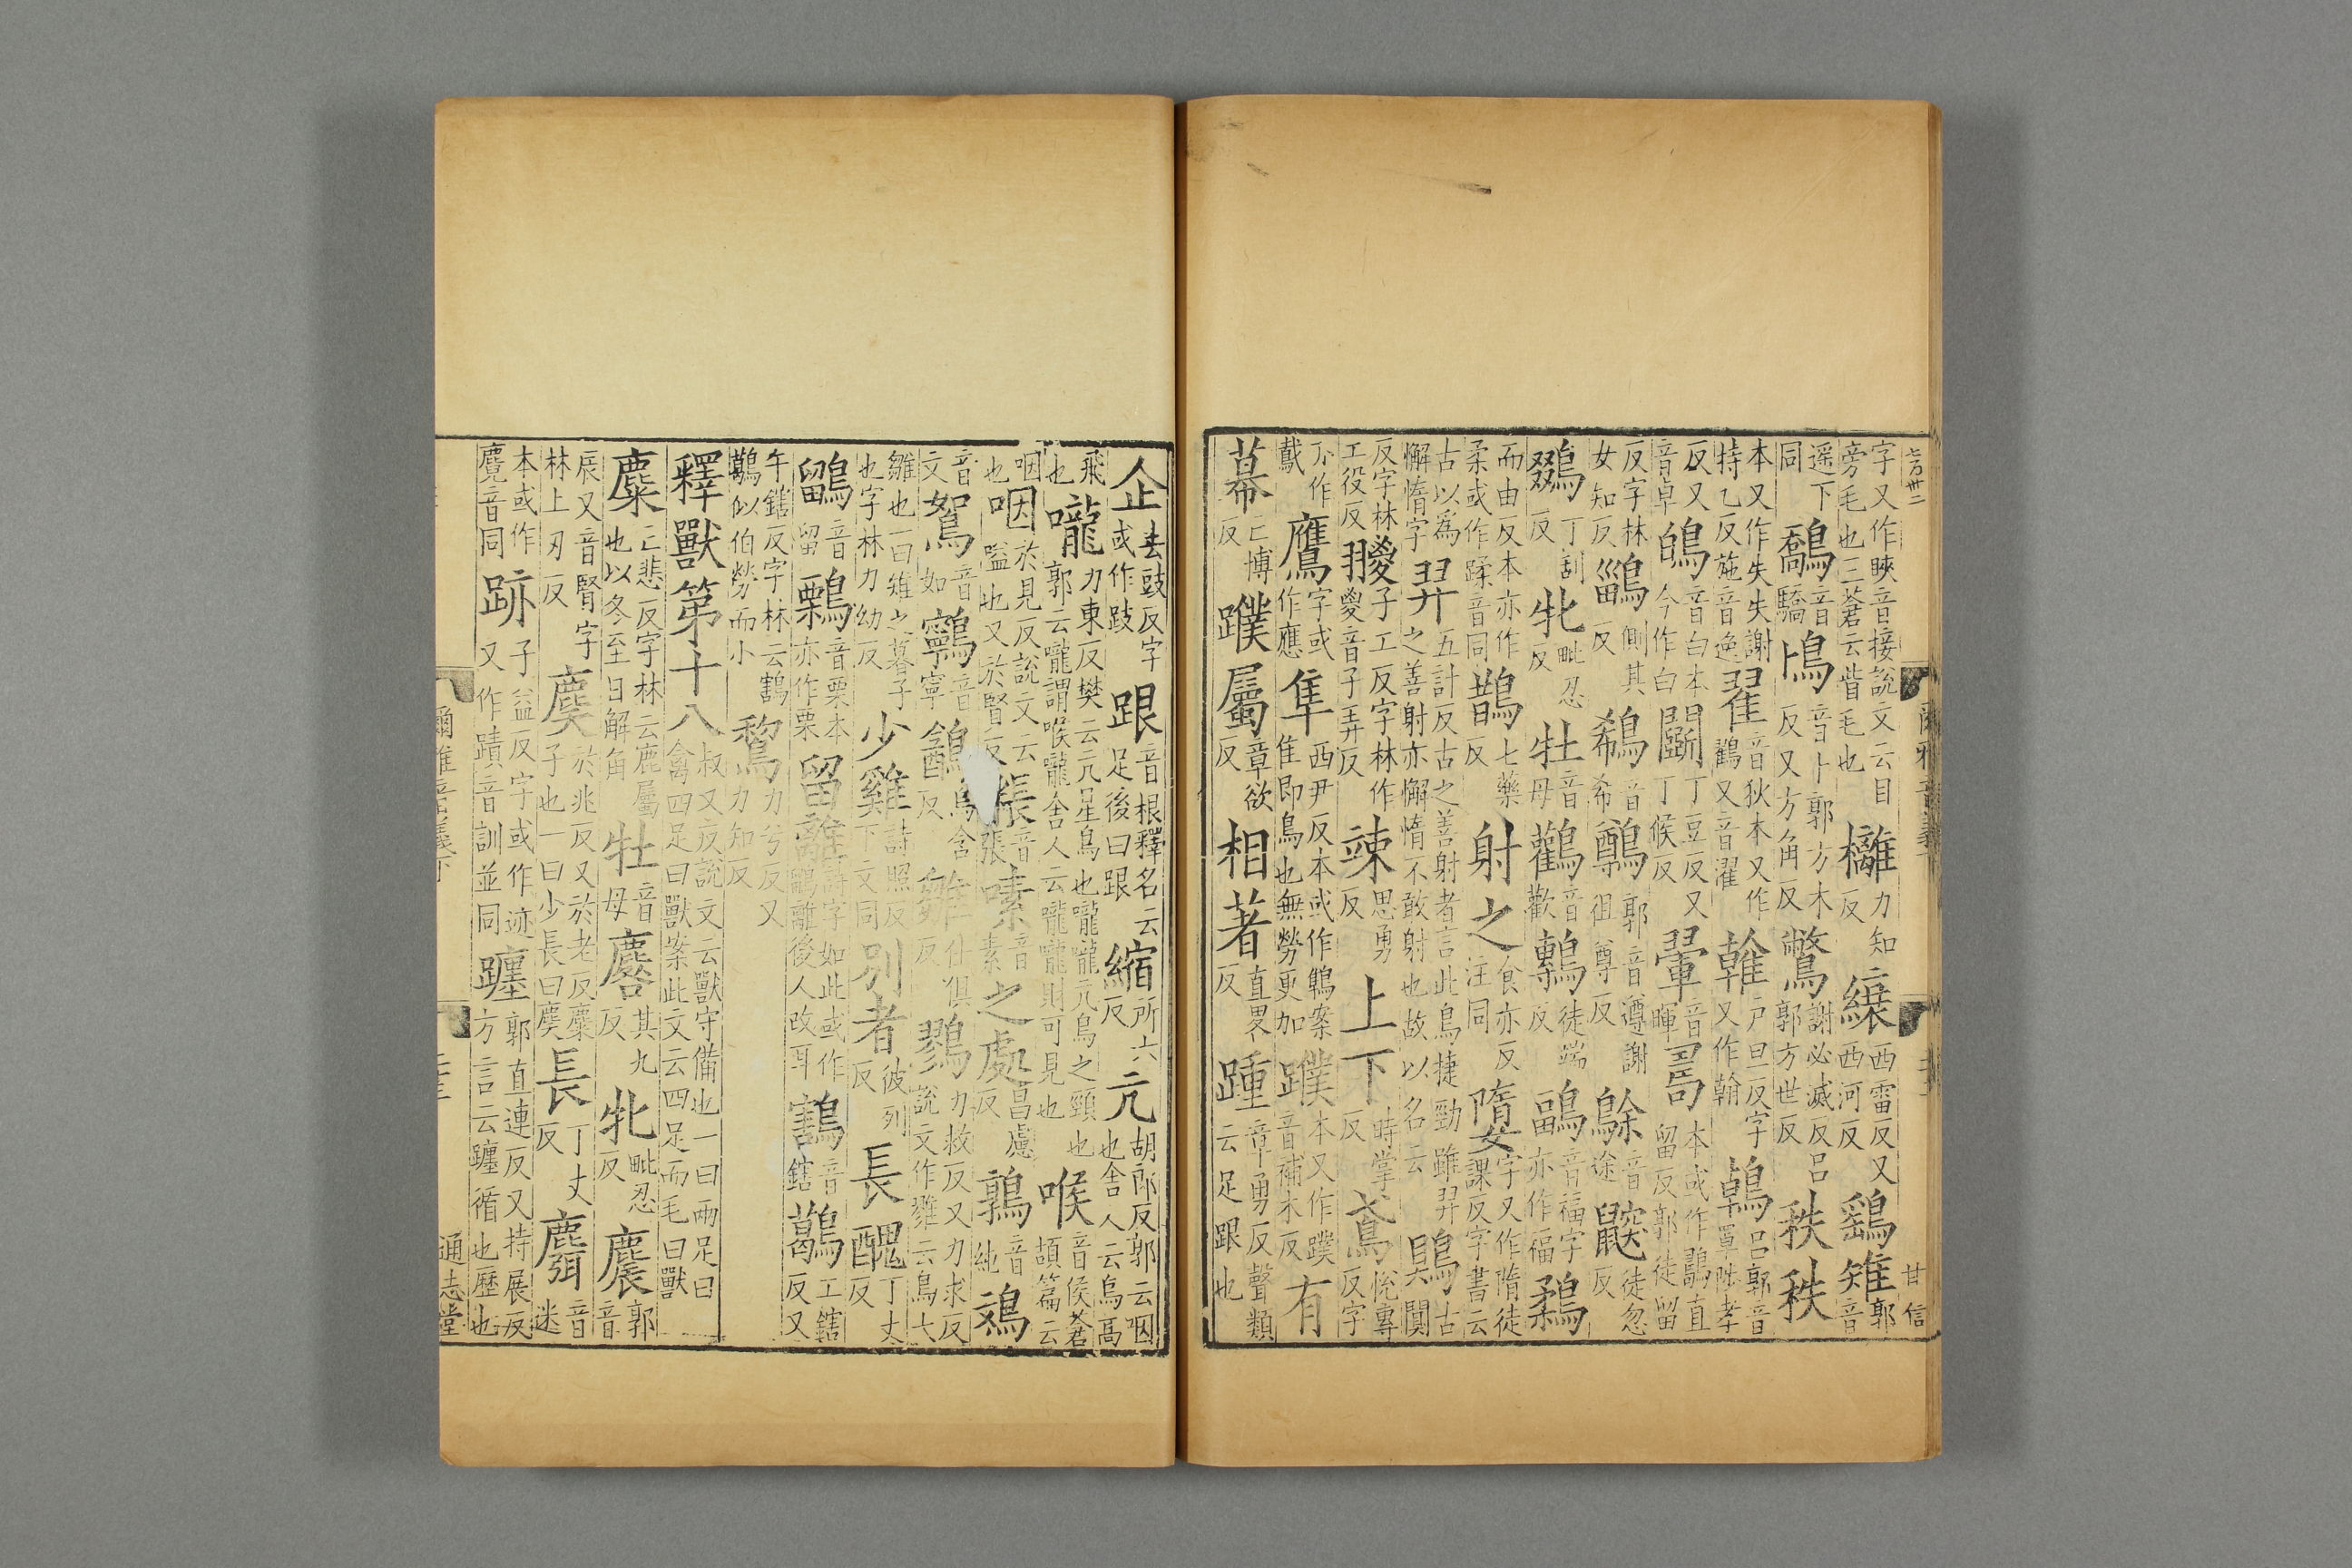 字又作䀹音接說文云目旁毛也三蒼云眥毛也 㰚力知反 纕西雷反又西河反 鷂雉郭音
遥下同 鷮音驕 鳪音卜郭方木反又方角反 鷩謝必滅反呂郭方世反 秩秩
本又作失失謝持乙反施音逸 翟音狄本又作鸐又音濯 雗戶旦反字又作翰 鵫呂郭音罩陟孝
反又音卓 鵫音白本今作白 鬭丁豆反又丁候反 翬音暉 𠷎本或作鷊直留反郭徒留
反字林女知反 鶅側其反 鵗音希 鷷郭音遵謝徂尊反 鵌音途 鼵徒忽反
鵽丁刮反 牝毗忍反 牡音母 鸛音歡 鷒徒端反 鶝音福字亦作福 鶔
而由反本亦作柔或作蹂音同 鵲七藥反 射之食亦反注同 墮字又作隋徒課反字書云
古以爲懈惰字 羿五計反古之善射者言此鳥捷勁雖羿之善射亦懈惰不敢射也故以名云 鶪古闃
反字林工役反 翪子工反字林作㚇音子弄反 竦思勇反 上下時掌反 鳶悅專反字
亦作鳶 鷹字或作應 隼西尹反本或作鵻案隹即鳥也無勞更加 蹼本又作蹼音補木反 有
幕亡博反 蹼屬章欲反 相著直畧反 踵章勇反聲類云足跟也
企去豉反字或作跂 跟音根釋名云足後曰跟 縮所六反 亢胡郎反郭云咽也舍人云烏高
飛也 嚨力東反樊云亢星鳥也嚨嚨亢鳥之頸也郭云嚨謂喉嚨舍人云嚨嚨則可見也 喉音侯蒼頡篇云
咽也 咽於見反說文云嗌也又於賢反 粻音張 嗉音素 之處昌慮反 鶉音純 鴳
音文 鴽音如 鸋音寧 鶕烏含反 雛仕俱反 鷚力救反又力求反說文作雡云鳥大
雛也一曰雉之暮子也字林力幼反 少雞詩照反下文同 別者彼列反 長醜丁丈反
鶹音留 鷅音栗本亦作栗 留離詩字如此或作鶹離後人改耳 鶷音鎋 鶡工鎋反又
午鎋反字林云鶷鶡似伯勞而小 鵹力兮反又力知反
釋獸第十八叔又反說文云獸守備也一曰兩足曰禽四足曰獸案此文云四足而毛曰獸
麋亡悲反字林云鹿屬也以冬至日解角 牡音母 麔其九反 牝毗忍反 麎郭音
辰又音腎字林上刃反 麌於兆反又於老反麋子也一曰少長曰麌 長丁丈反 麛音迷
本或作麑音同 跡子益反字或作迹又作蹟音訓並同 躔郭直連反又持展反方言云躔循也歷也
七百卅二
甘信
爾雅音義下
通志堂